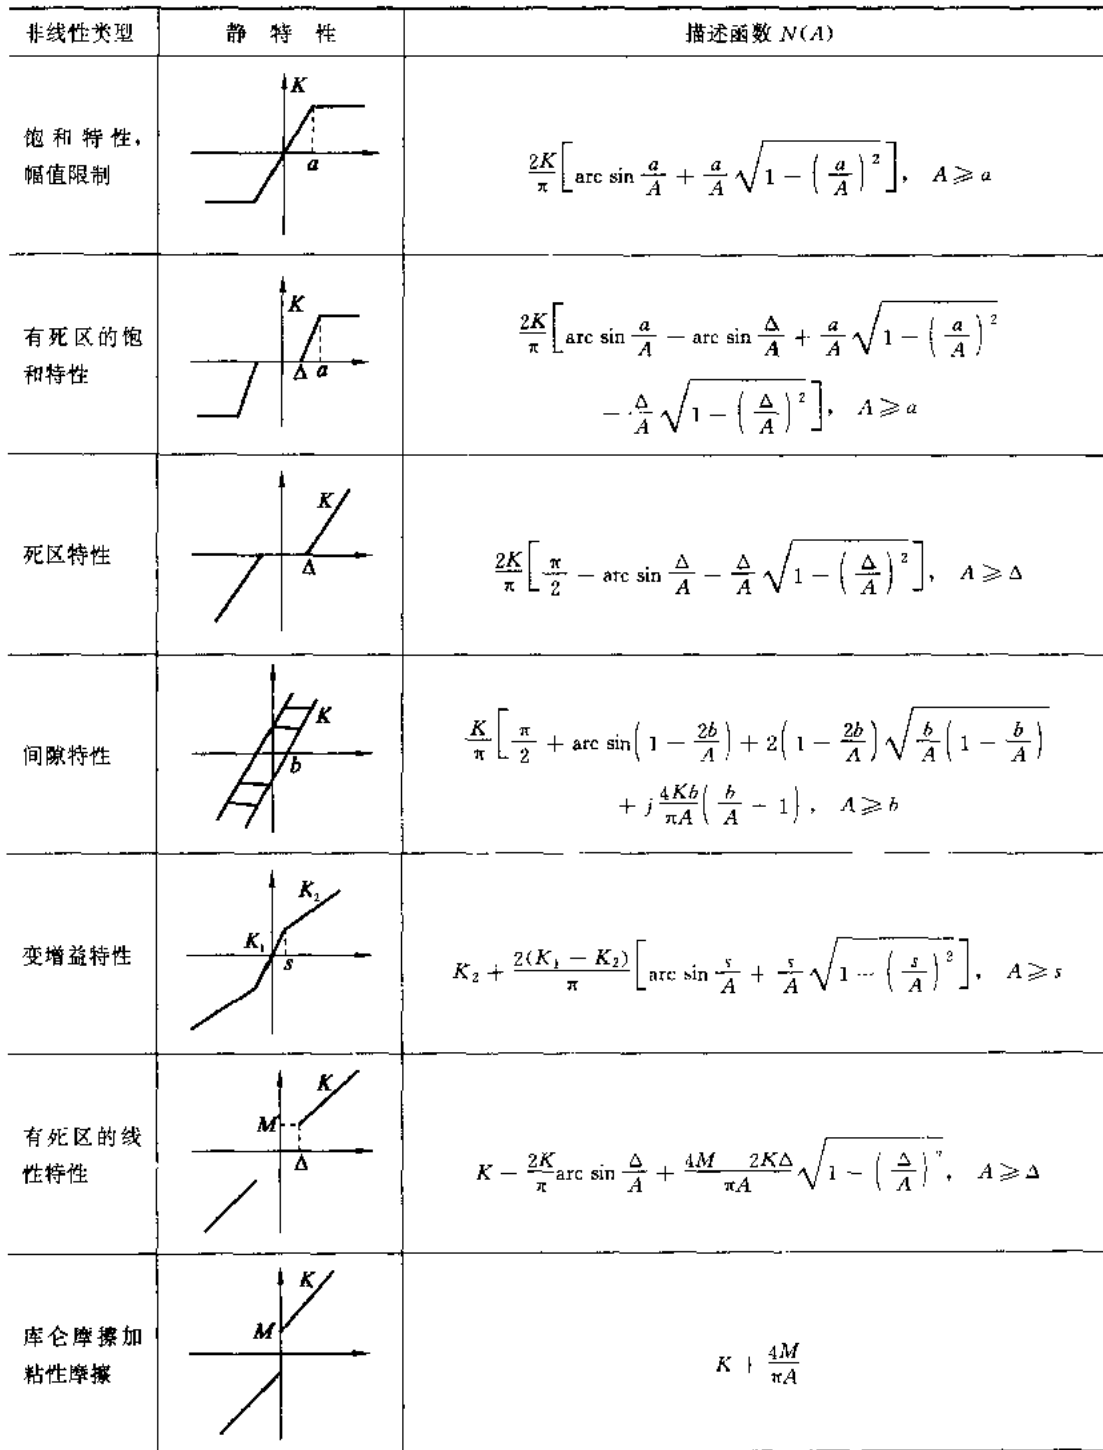 非线性类型 静 特 性 描述函数 N(A)
饱 和 特 性，
幅值限制
K
a
\frac{2K}{π}[arc sin \frac{a}{A} + \frac{a}{A} \sqrt{1 - (\frac{a}{A})^2}], A ⩾ a
有死区的饱
和特性
K
Δ a
\frac{2K}{π}[arc sin \frac{a}{A} - arc sin \frac{Δ}{A} + \frac{a}{A} \sqrt{1 - (\frac{a}{A})^2}
- \frac{Δ}{A} \sqrt{1 - (\frac{Δ}{A})^2}], A ⩾ a
死区特性
K
Δ
\frac{2K}{π}[\frac{π}{2} - arc sin \frac{Δ}{A} - \frac{Δ}{A} \sqrt{1 - (\frac{Δ}{A})^2}], A ⩾ Δ
间隙特性
K
b
\frac{K}{π}[\frac{π}{2} + arc sin(1 - \frac{2b}{A}) + 2(1 - \frac{2b}{A}) \sqrt{\frac{b}{A}(1 - \frac{b}{A})}
+ j\frac{4Kb}{πA}(\frac{b}{A} - 1), A ⩾ b
变增益特性
K_2
K_1
s
K_2 + \frac{2(K_1 - K_2)}{π}[arc sin \frac{s}{A} + \frac{s}{A} \sqrt{1 - (\frac{s}{A})^2}], A ⩾ s
有死区的线
性特性
K
M
Δ
K - \frac{2K}{π}arc sin \frac{Δ}{A} + \frac{4M 2KΔ}{πA} \sqrt{1 - (\frac{Δ}{A})^2}, A ⩾ Δ
库仑摩擦加
粘性摩擦
K
M
K + \frac{4M}{πA}